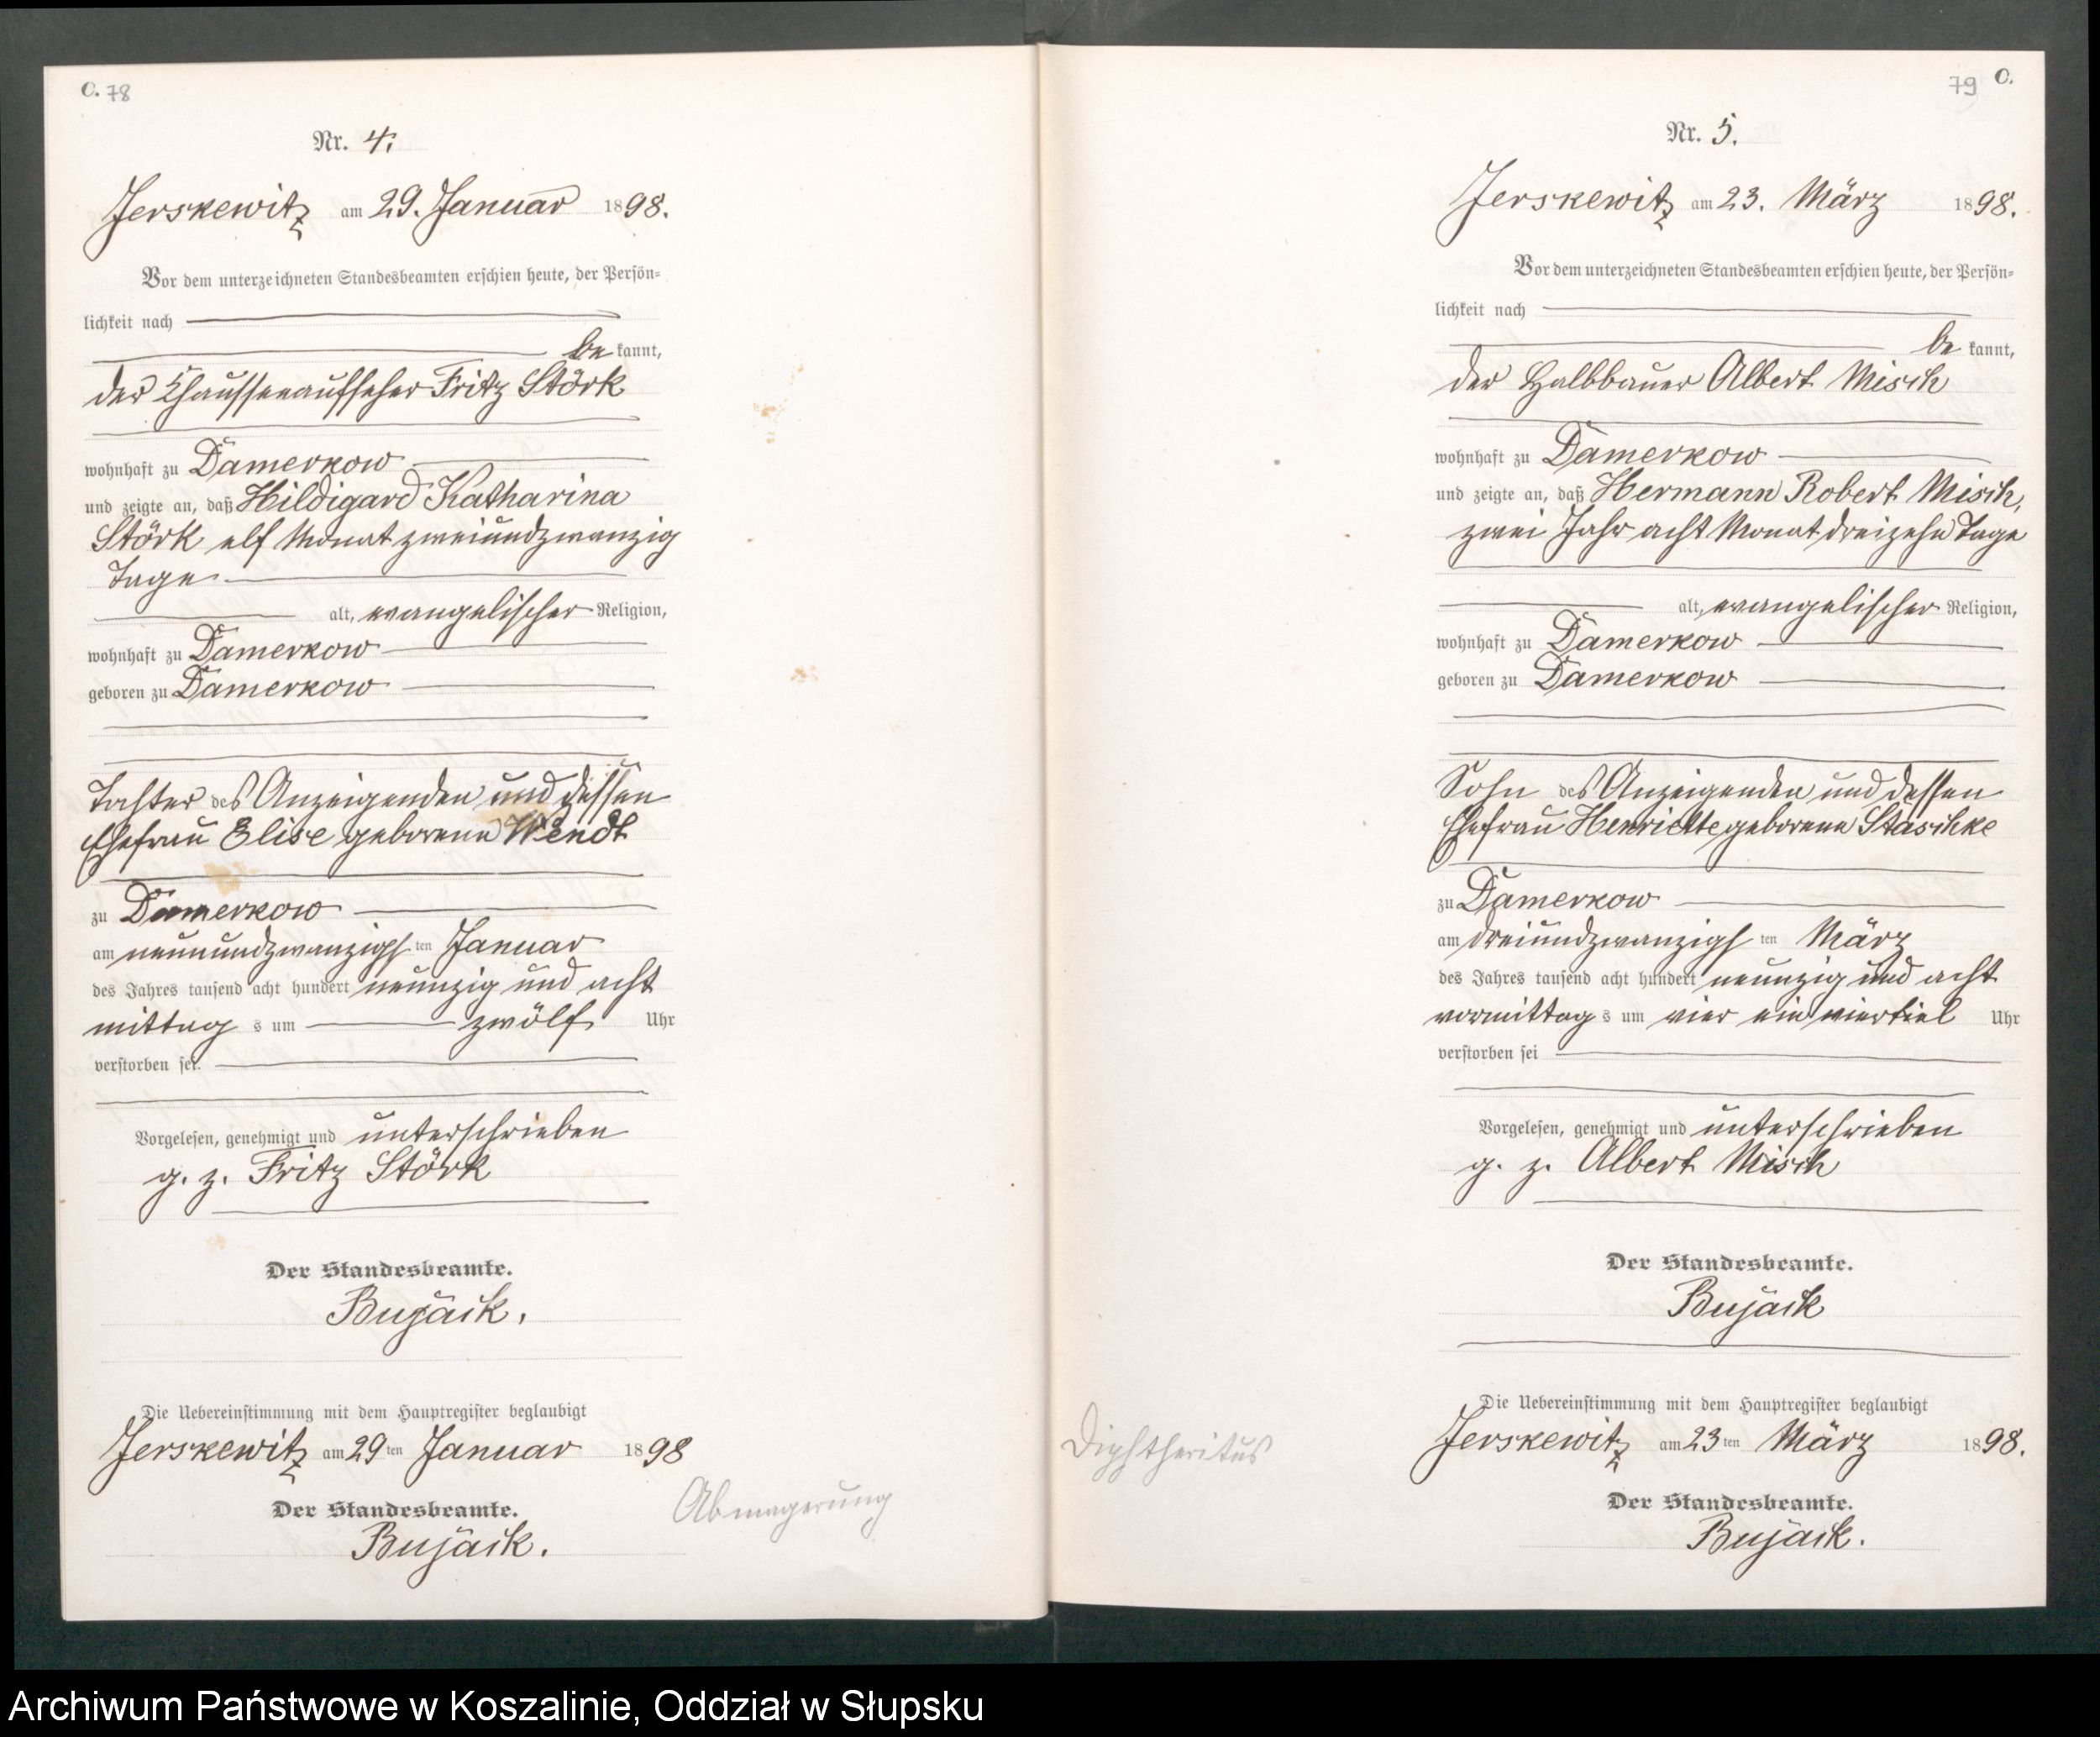 C. 78
Nr. 4.
Jerskewitz am 29. Januar 1898.
Vor dem unterzeichneten Standesbeamten erschien heute, der Persön-
lichkeit nach
bekannt,
der Chausseeaufseher Fritz Störk
wohnhaft zu Damerkow
und zeigte an, daß Hildigard Katharina
Störk elf Monat zweiundzwanzig
Tage
alt, evangelischer Religion,
wohnhaft zu Damerkow
geboren zu Damerkow
Tochter des Anzeigenden und dessen
Ehefrau Elise geborene Wendt
zu Damerkow
am neunundzwanzigsten Januar
des Jahres tausend acht hundert neunzig und acht
mittags um zwölf Uhr
verstorben sei.
Vorgelesen, genehmigt und unterschrieben
g. z. Fritz Störk
Der Standesbeamte.
Bujack.
Die Uebereinstimmung mit dem Hauptregister beglaubigt
Jerskewitz am 29ten Januar 1898
Der Standesbeamte.
Bujack.
Abmagerung
79 C.
Nr. 5.
Jerskewitz am 23. März 1898.
Vor dem unterzeichneten Standesbeamten erschien heute, der Persön-
lichkeit nach
bekannt,
der Halbbauer Albert Misch
wohnhaft zu Damerkow
und zeigte an, daß Hermann Robert Misch,
zwei Jahr acht Monat dreizehn Tage
alt, evangelischer Religion,
wohnhaft zu Damerkow
geboren zu Damerkow
Sohn des Anzeigenden und dessen
Ehefrau Henriette geborene Staschke
zu Damerkow
am dreiundzwanzigsten März
des Jahres tausend acht hundert neunzig und acht
vormittags um vier ein viertel Uhr
verstorben sei
Vorgelesen, genehmigt und unterschrieben
g. z. Albert Misch
Der Standesbeamte.
Bujack
Die Uebereinstimmung mit dem Hauptregister beglaubigt
Jerskewitz am 23ten März 1898.
Der Standesbeamte.
Bujack.
Diphtheritus
Archiwum Państwowe w Koszalinie, Oddział w Słupsku